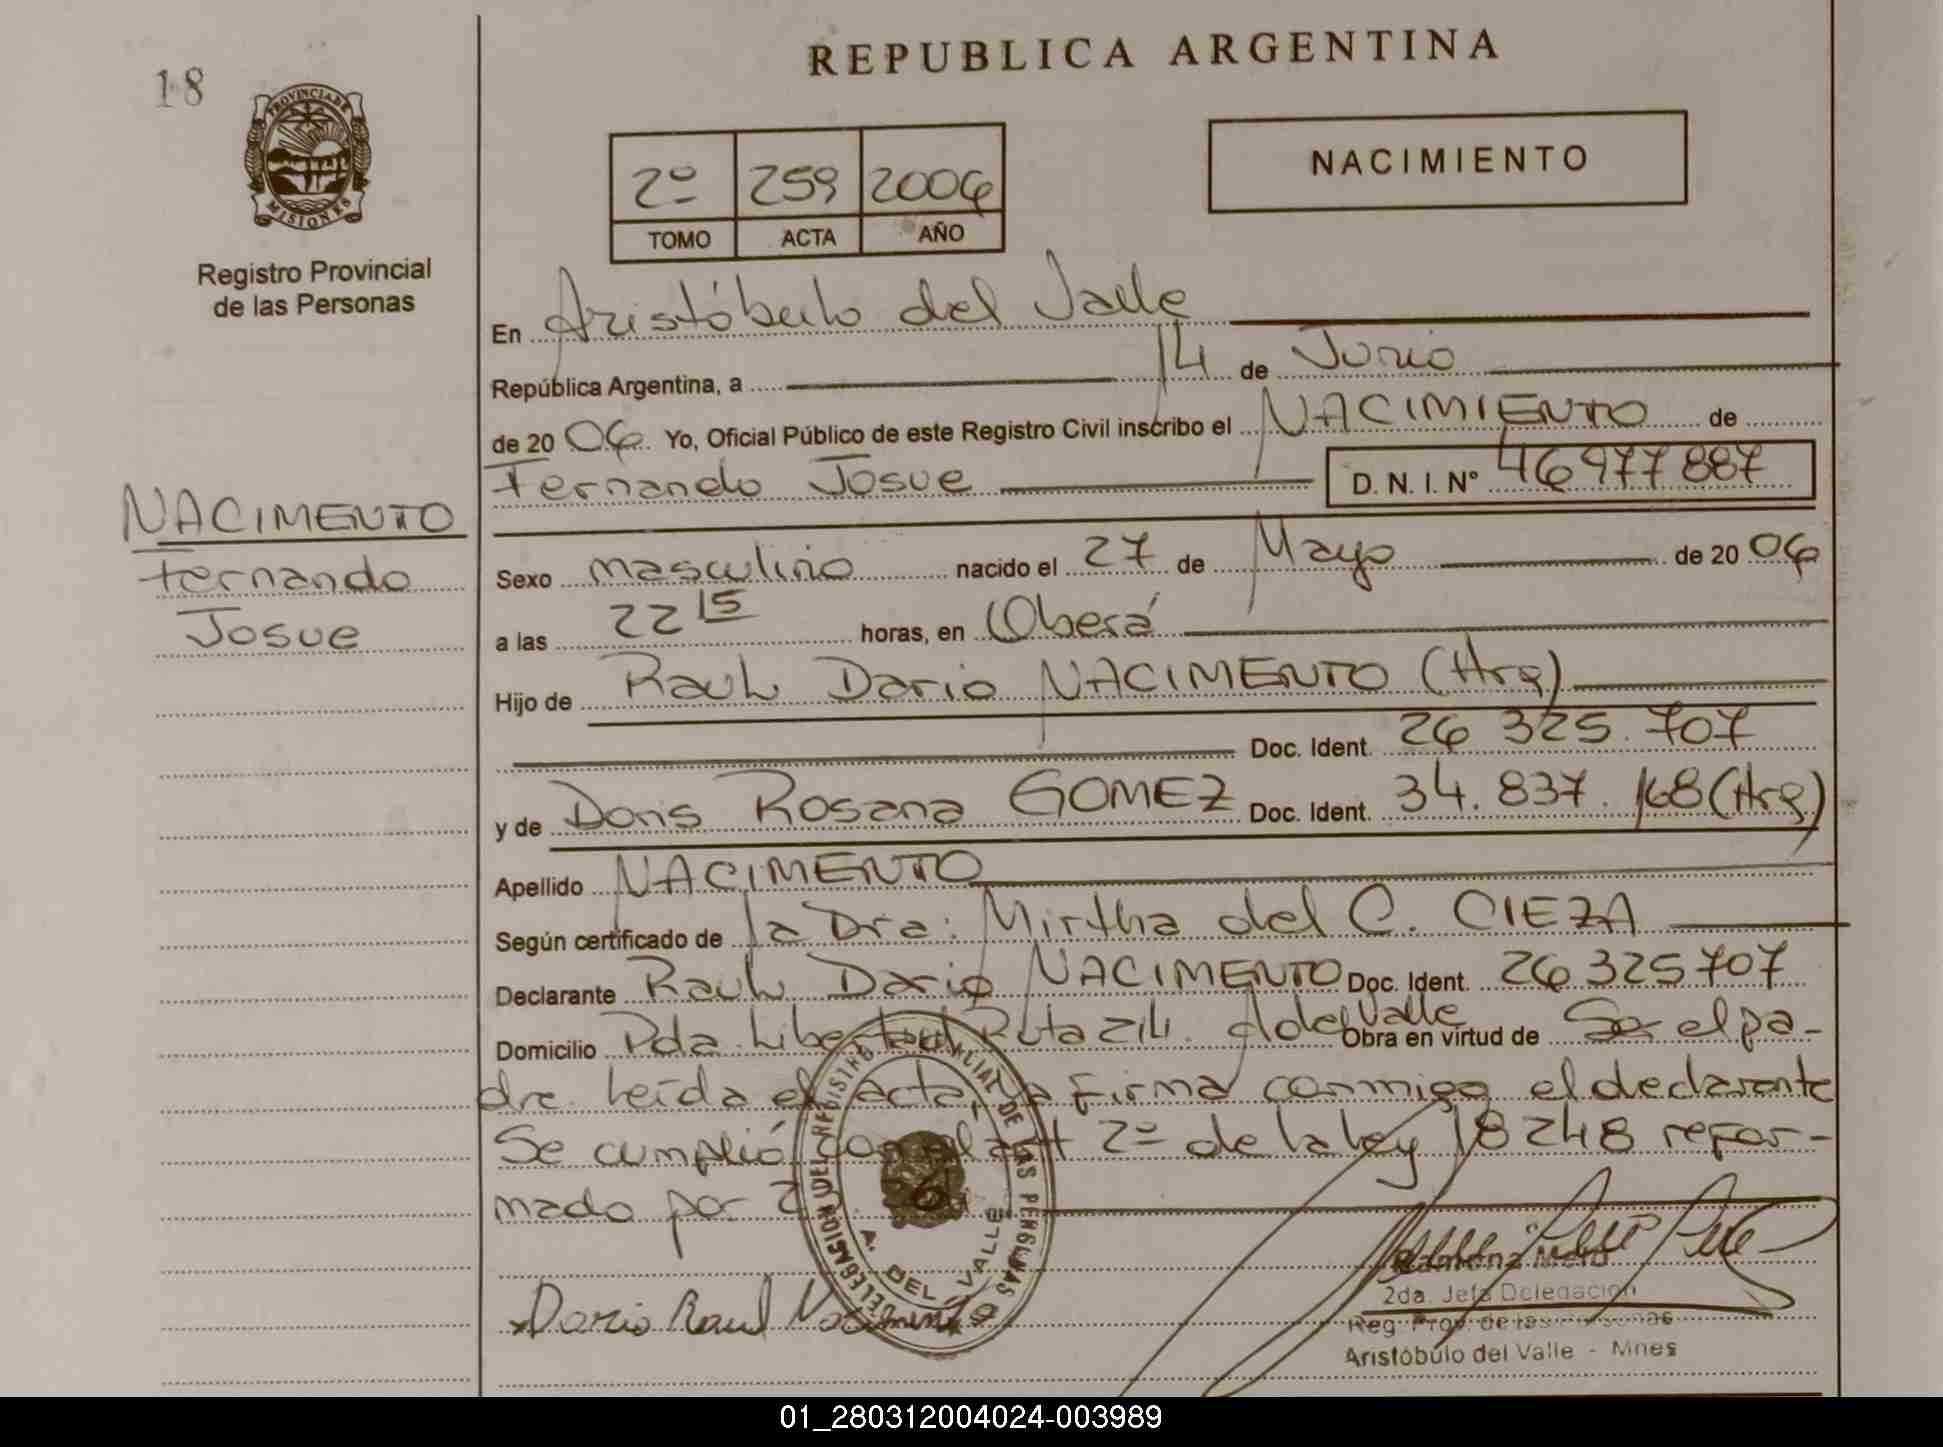 18
REPUBLICA ARGENTINA
PROVINCIA DE
MISIONES
Registro Provincial
de las Personas
2º 259 2006
TOMO ACTA AÑO
NACIMIENTO
En Aristóbulo del Valle
República Argentina, a 14 de Junio
de 2006. Yo, Oficial Público de este Registro Civil inscribo el NACIMIENTO de
Fernando Josue D. N. I. Nº 46977887
NACIMENTO
Fernando
Josue
Sexo masculino nacido el 27 de Mayo de 2006
a las 22 15 horas, en Oberá
Hijo de Raul Dario NACIMENTO (Arg)
Doc. Ident. 26 325.707
y de Doris Rosana GOMEZ Doc. Ident. 34.837.168 (Arg)
Apellido NACIMENTO
Según certificado de la Dra: Mirtha del C. CIEZA
Declarante Raul Dario NACIMENTO Doc. Ident. 26325707
Domicilio Pda. Libertad Ruta 214. A del Valle Obra en virtud de Ser el pa-
dre. Leída el acta, la Firma conmigo el declarante
Se cumplió con el art 2º de la ley 18248 refor-
mado por
DELEGACION DEL REGISTRO PROVINCIAL DE LAS PERSONAS
A. DEL VALLE
Dario Raul Nacimento
Ramona Melo
2da. Jefa Delegación
Reg. Prov. de las Personas
Aristóbulo del Valle - Mnes
01_280312004024-003989